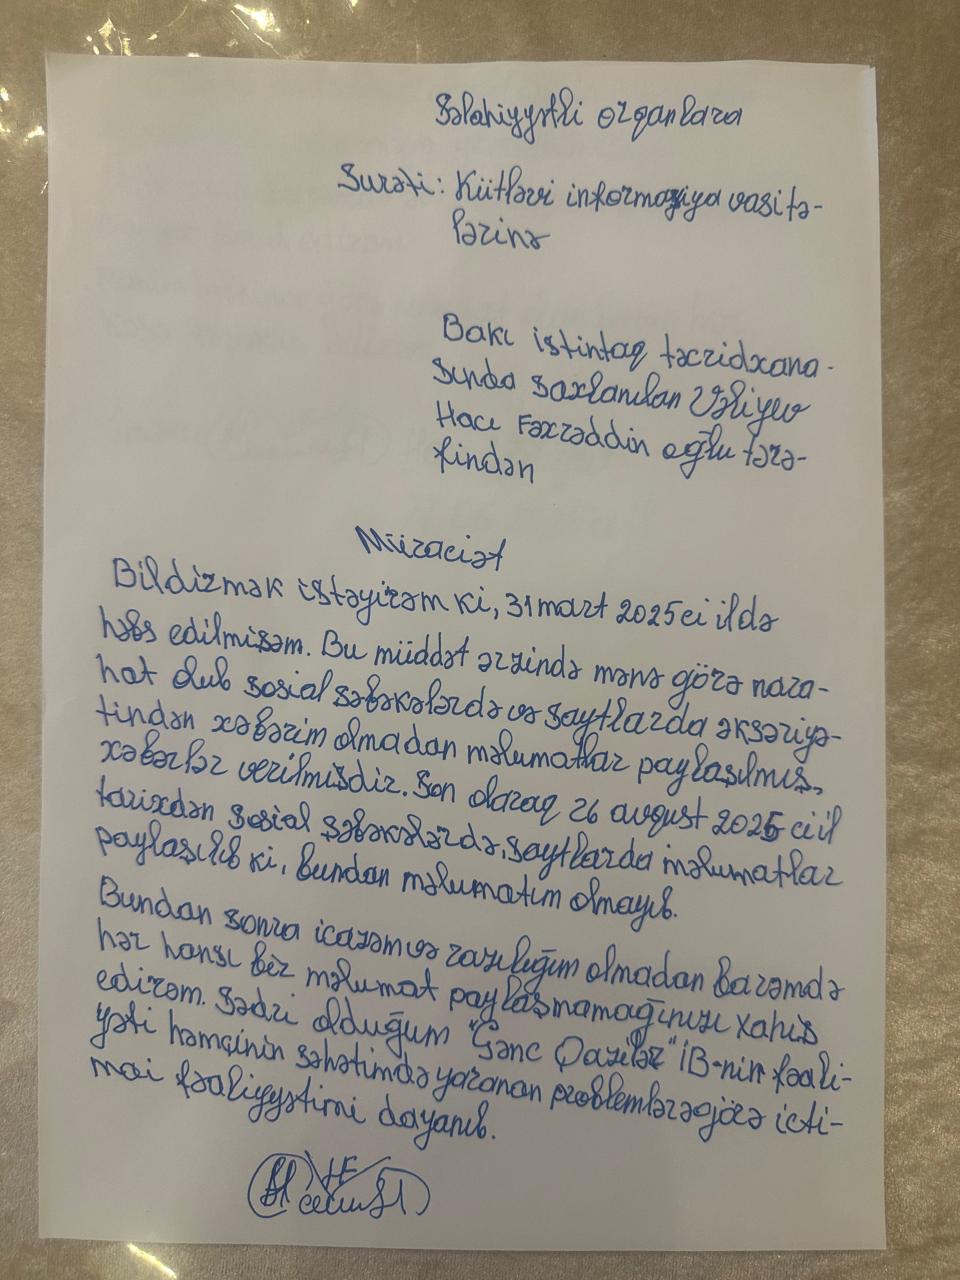 Səlahiyyətli orqanlara
Surəti: Kütləvi informasiya vasitə-
lərinə
Bakı istintaq təcridxana-
sında saxlanılan Vəliyev
Hacı Fəxrəddin oğlu tərə-
findən
Müraciət
Bildirmək istəyirəm ki, 31 mart 2025 ci ildə
həbs edilmişəm. Bu müddət ərzində mənə görə nara-
hat olub sosial şəbəkələrdə və saytlarda əksəriyə-
tindən xəbərim olmadan məlumatlar paylaşılmış,
xəbərlər verilmişdir. Son olaraq 26 avqust 2025 ci il
tarixdən sosial şəbəkələrdə, saytlarda məlumatlar
paylaşılıb ki, bundan məlumatım olmayıb.
Bundan sonra icazəm və razılığım olmadan barəmdə
hər hansı bir məlumat paylaşmamağınızı xahiş
edirəm. Sədri olduğum "Gənc Qazilər" İB-nin fəali-
yəti həmçinin səhətimdə yaranan problemlərə görə icti-
mai fəaliyyətimi dayanıb.